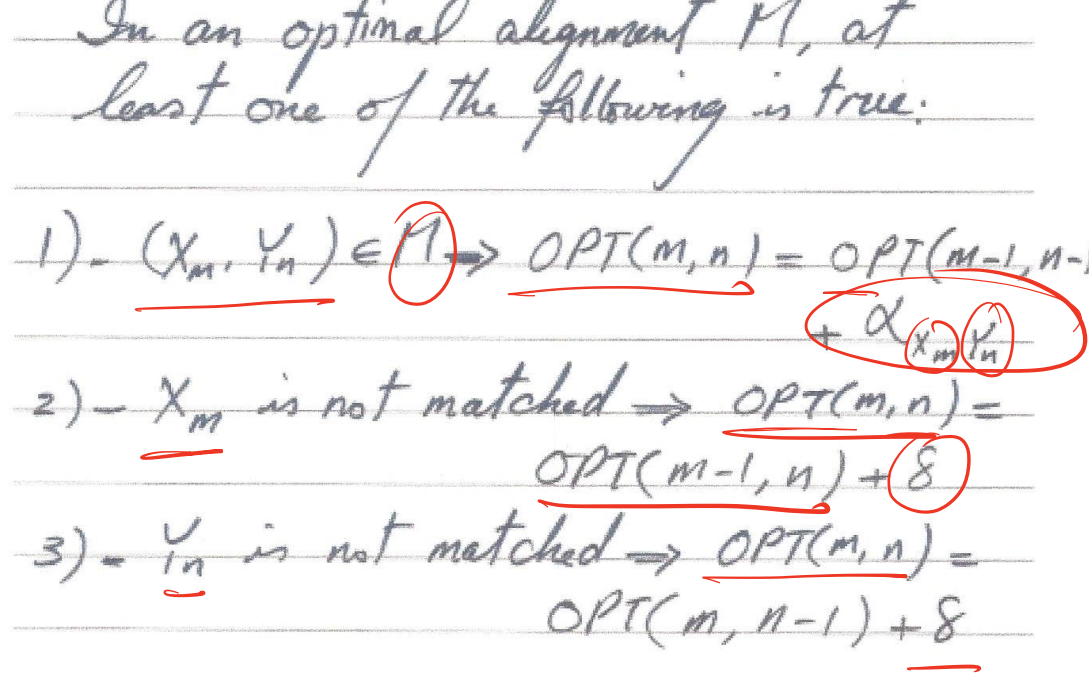 In an optimal alignment M, at
least one of the following is true:
1)- (Xm, Yn) ∈ M ⇒ OPT(m, n) = OPT(m-1, n-1
+ αXmYn
2)- Xm is not matched ⇒ OPT(m, n) =
OPT(m-1, n) + δ
3)- Yn is not matched ⇒ OPT(m, n) =
OPT(m, n-1) + δ